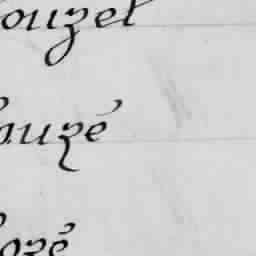 ouzel
auzé
ozé